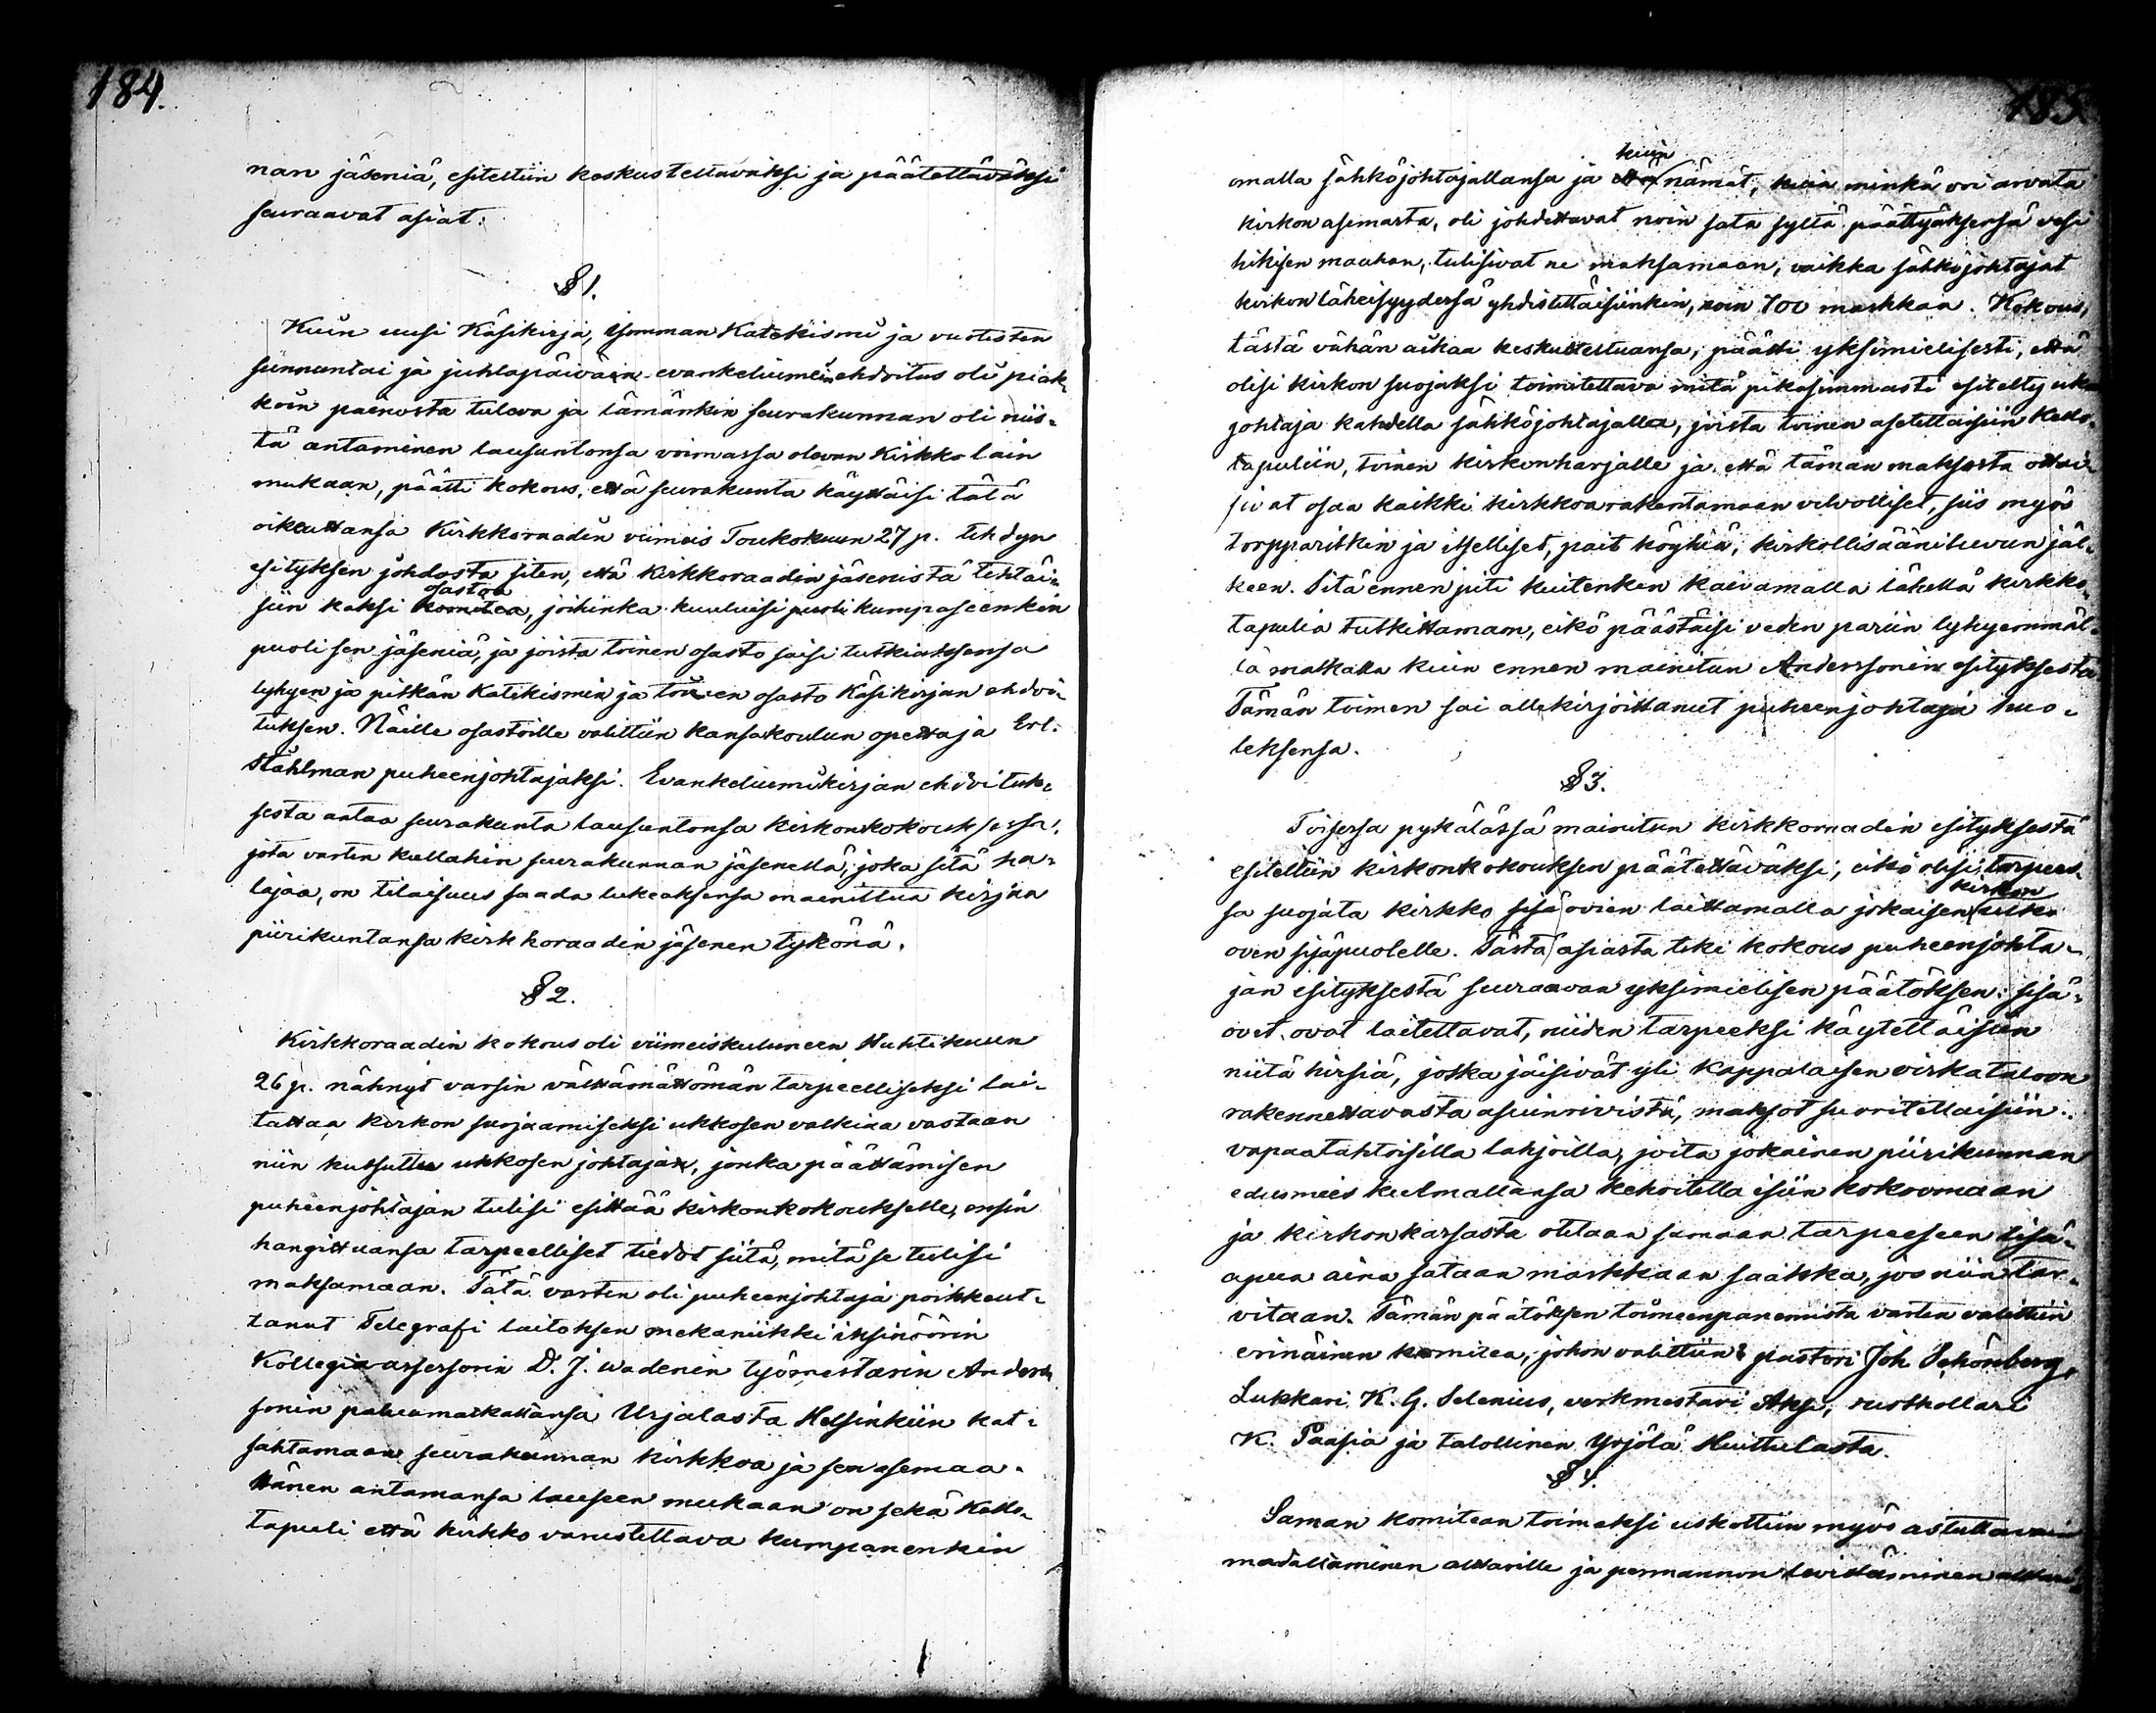 184.
nan jäseniä, esiteltiin keskusteltavaksi ja päätettäväksi
seuraavat asiat:
§ 1.
Kuin uusi Käsikirja, Isomman Katekismi ja vuotisten
sunnuntai ja juhlapäiväin evankeliumein ehdoitus oli piak-
koin painosta tuleva ja tämänkin seurakunnan oli niis-
tä antaminen lausuntonsa voimassa olevan Kirkko lain
mukaan, päätti kokous, että seurakunta käyttäisi tätä
oikeuttansa Kirkkoraadin viimeis Toukokuun 27 p. tehdyn
esityksen johdosta siten, että Kirkkoraadin jäsenistä tehtäi-
osastoa
siin kaksi komitea, joihinka kuuluisi puoli kumpaseenkin
puoli sen jäseniä, ja joista toinen osasto saisi tutkiaksensa
lyhyen ja pitkän Katekismin ja toinen osasto Käsikirjan ehdoi-
tuksen. Näille osastoille valittiin kansakoulun opettaja Erl.
Ståhlman puheenjohtajaksi. Evankeliumikirjan ehdoituk-
sesta antaa seurakunta lausuntonsa kirkonkokouksessa,
jota varten kullahin seurakunnan jäsenellä, joka sitä ha-
lajaa, on tilaisuus saada lukeaksensa mainittua kirjaa
piirikuntansa kirkkoraadin jäsenen tykönä.
§ 2.
Kirkkoraadin kokous oli viimeiskuluneen Huhtikuun
26 p. nähnyt varsin välttämättömän tarpeelliseksi lai-
tattaa kirkon suojaamiseksi ukkosen valkiaa vastaan
niin kutsuttu ukkosen johtajan, jonka päättämisen
puheenjohtajan tulisi esittää kirkonkokoukselle, ensin
hangittuansa tarpeelliset tiedot siitä, mitä se tulisi
maksamaan. Tätä varten oli puheenjohtaja poikkeut-
tanut Telegrafi laitoksen mekaniikki insinöörin
Kollegiaassessorin D. J. Wadenin työmestarin Anders-
sonin paluumatkallansa Urjalasta Helsinkiin kat-
sahtamaan seurakunnan kirkkoa ja sen asemaa.
Hänen antamansa lauseen mukaan on sekä Kello-
tapuli että kirkko varustettava kumpanenkin
185
kuin
omalla sähköjohtajallansa ja että nämät, kuin minkä voi arvata
kirkon asemasta, oli johdettavat noin sata syltä päättyäksensä vesi
hikisen maahan, tulisivat ne maksamaan, vaikka sähköjohtajat
kirkon läheisyydessä yhdistettäisiinkin, noin 700 markkaa. Kokous,
tästä vähän aikaa keskusteltuansa, päätti yksimielisesti, että
olisi kirkon suojaksi toimitettava mitä pikasimmasti esitelty ukon
johtaja kahdella sähköjohtajalla, joista toinen asetettaisiin Kello-
tapuliin, toinen kirkonharjalle ja että tämän maksosta ottai-
sivat osaa kaikki kirkkoa rakentamaan velvolliset, siis myös
torpparitkin ja itselliset, pait köyhiä, kirkollisääniluvun jäl-
keen. Sitä ennen piti kuitenkin kaivamalla lähellä kirkko-
tapulia tutkittaman, eikö päästäisi veden pariin lyhyemmäl-
lä matkalla kuin ennen mainitun Anderssonin esityksestä
Tämän toimen sai allekirjoittanut puheenjohtaja huo-
leksensa.
§ 3.
Toisessa pykälässä mainitun kirkkoraadin esityksestä
esiteltiin kirkonkokouksen päätettäväksi, eikö olisi tarpees-
kirkon
sa suojata kirkko sisä ovien laittamalla jokaisen ulko
oven sisäpuolelle. Tästä asiasta teki kokous puheenjohta-
jan esityksestä seuraavan yksimielisen päätöksen: sisä-
ovet ovat laitettavat, niiden tarpeeksi käytettäisiin
niitä hirsiä, jotka jäisivät yli Kappalaisen virkataloon
rakennettavasta asuinrivistä, maksot suoritettaisiin
vapaatahtoisilla lahjoilla, joita jokainen piirikunnan
edusmies kulmallansa kehoitella isiin kokoomaan
ja kirkonkassasta otetaan samaan tarpeeseen lisä-
apua aina sataan markkaan saakka, jos niin tar-
vitaan. Tämän päätöksen toimeenpanemista varten valittiin
erinäinen komitea, johon valittiin pastori Joh. Schönberg,
Lukkari K. G. Selenius, verkmestari Aksi, rusthollari
K. Paasia ja talollinen Yrjölä Huittulasta.
§ 4.
Saman komitean toimeksi uskottiin myös astuttavain
madaltaminen alttarille ja permannon levittäminen